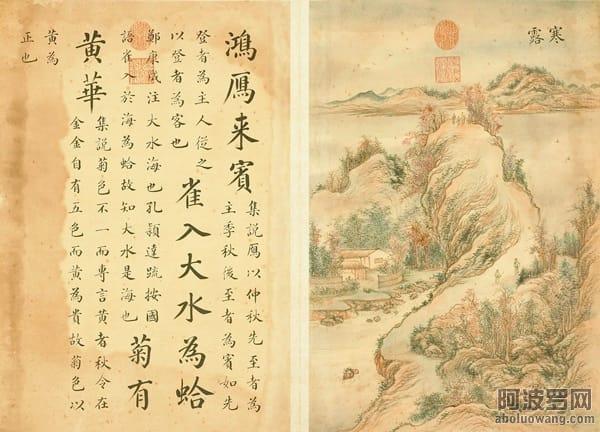 寒露
鴻鴈来賓
集說鴈以仲秋先至者為
主季秋後至者為賓如先
登者為主人從之
以登者為客也
雀入大水為蛤
鄭康成注大水海也孔穎達疏按國
語雀入於海為蛤故知大水是海也
菊有
黄華
集說菊色不一而專言黄者秋令在
金金自有五色而黄為貴故菊色以
黄為
正也
阿波罗网
aboluowang.com